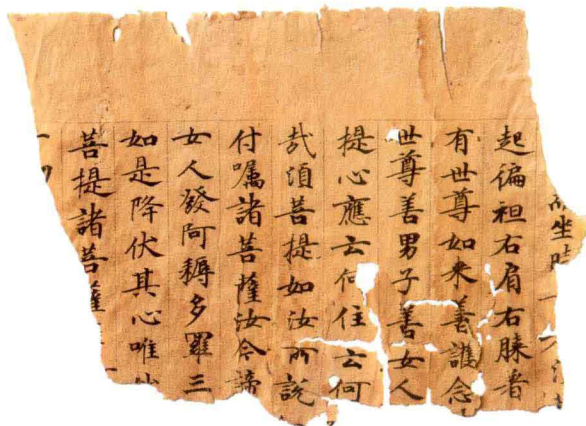 坐時
起偏袒右肩右膝者
有世尊如來善護念
世尊善男子善女人
提心應云何住云何
哉須菩提如汝所說
付囑諸菩薩汝今諦
女人發阿耨多羅三
如是降伏其心唯
菩提諸菩薩
一